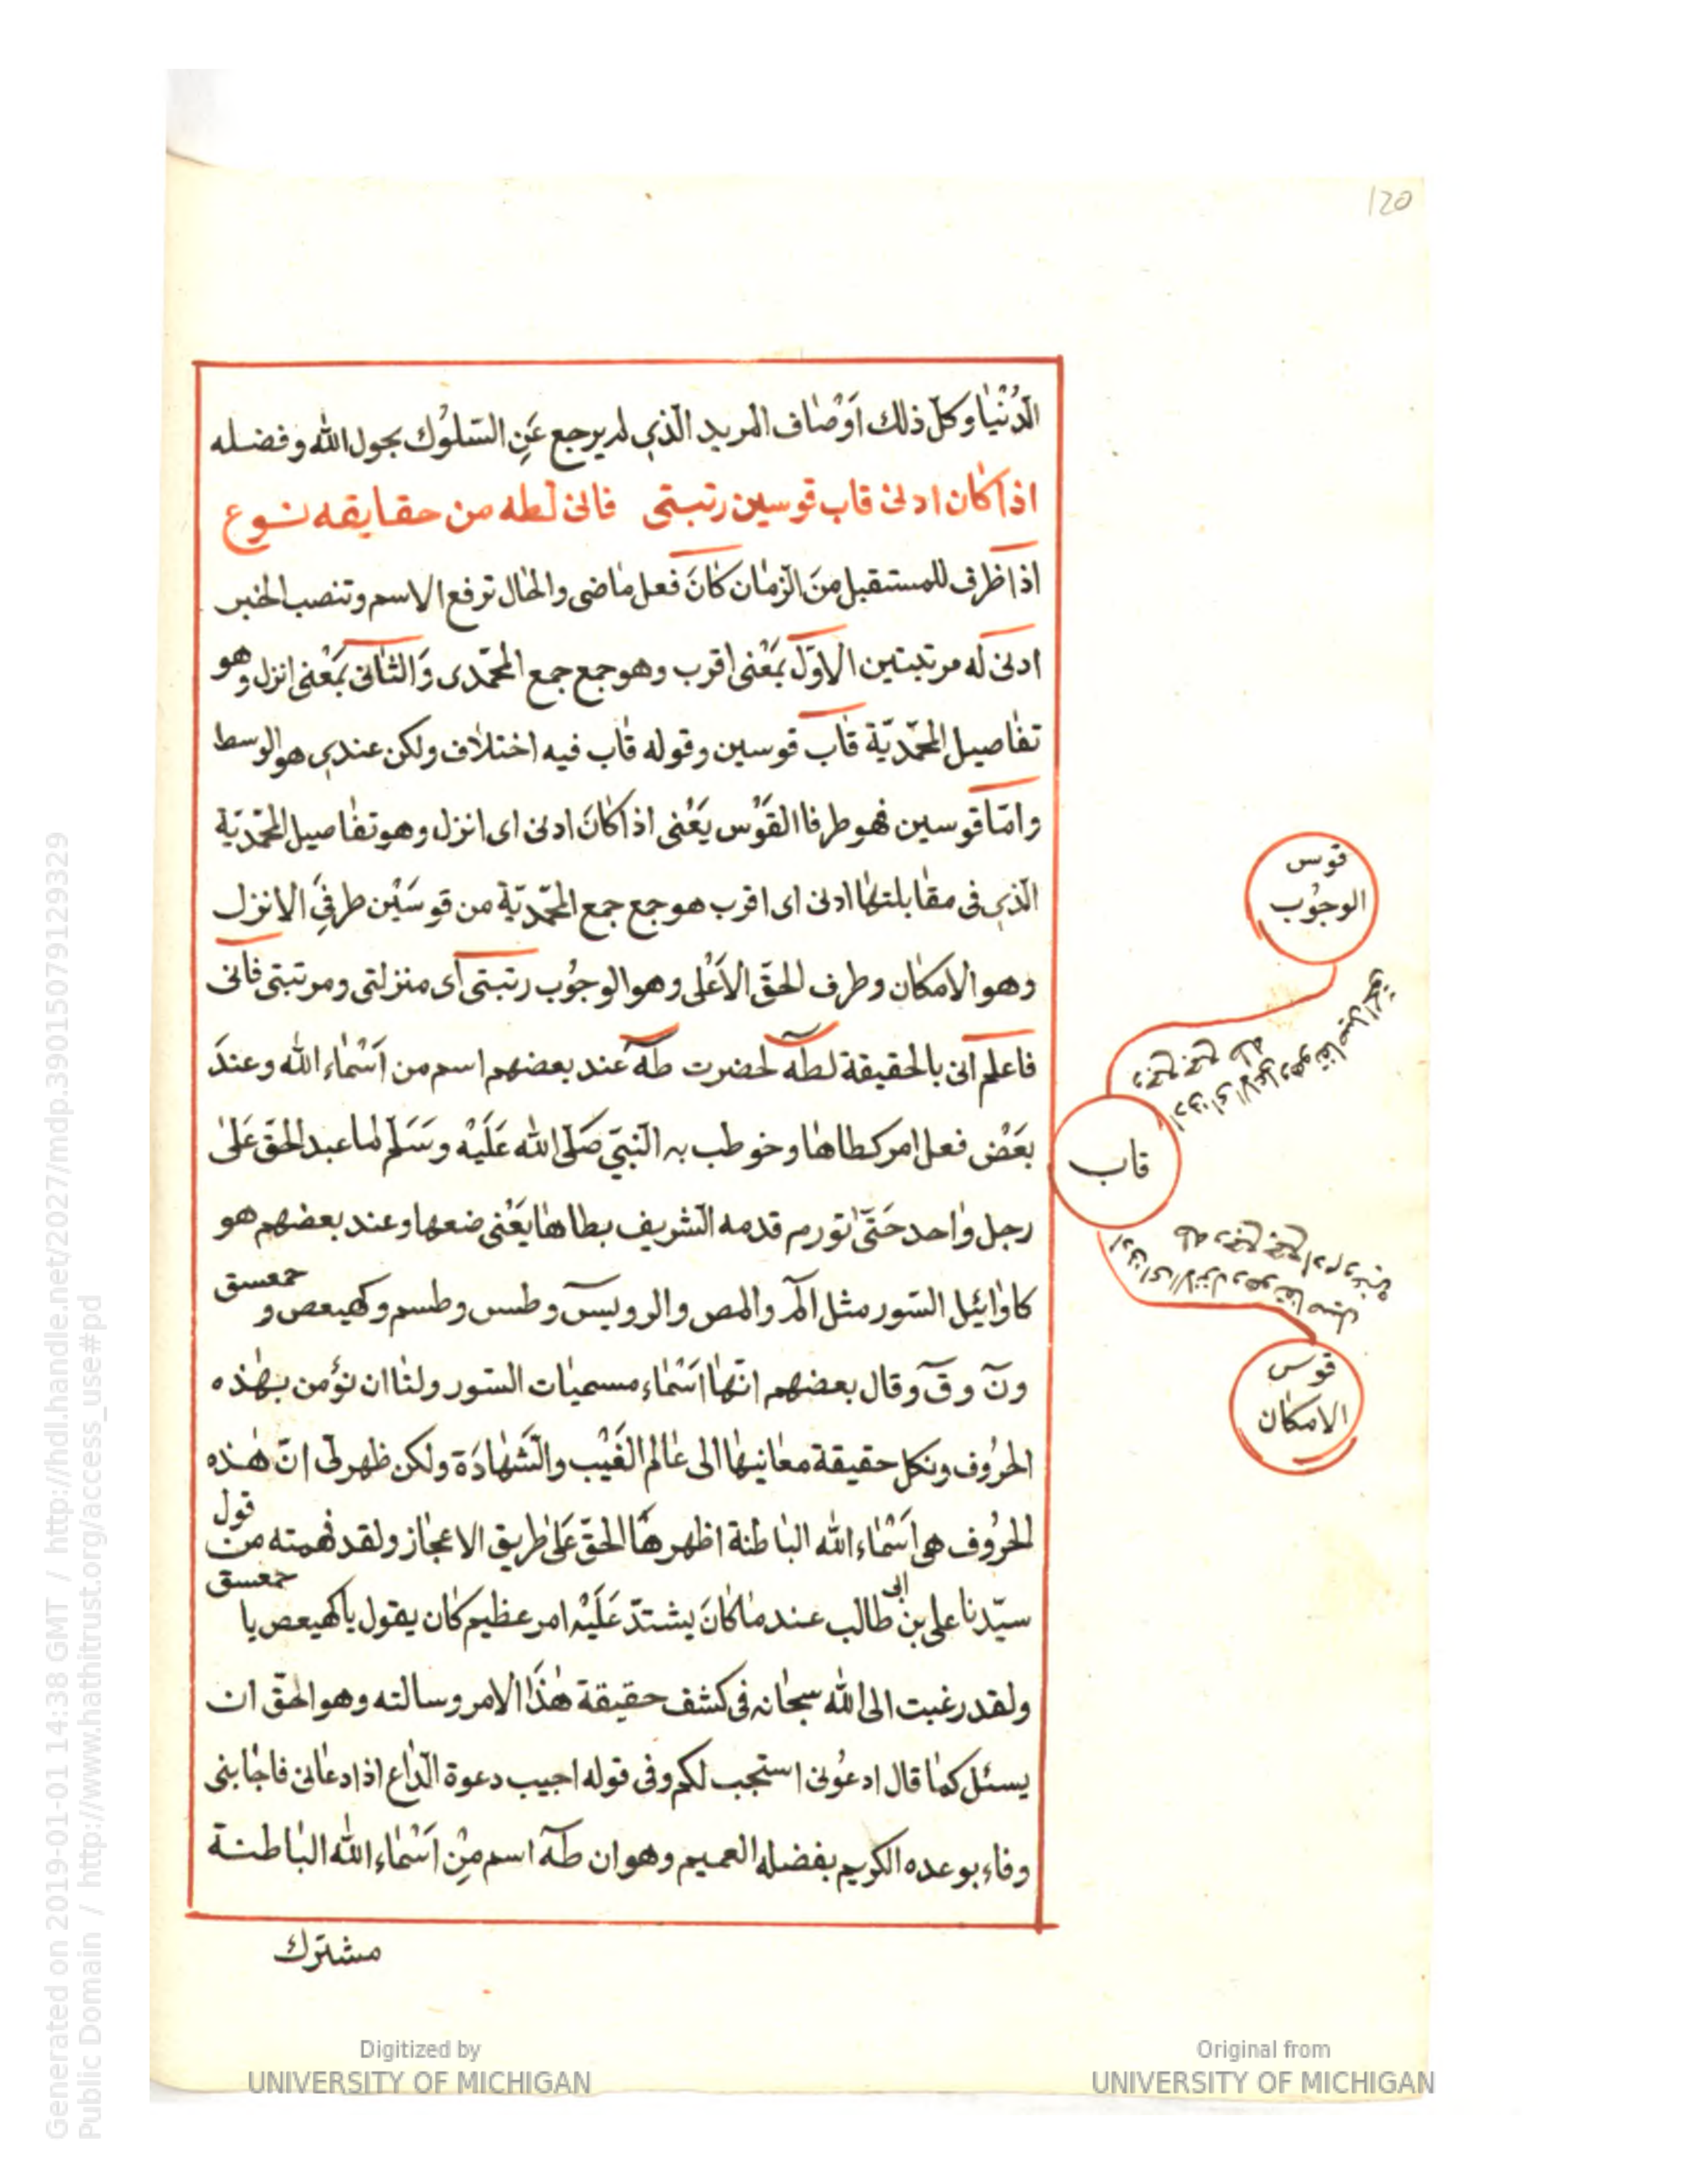 120
الدُّنْيَا وكلّ ذلك اَوْصَاف المريد الّذي لم يرجع عَنِ السّلوُك بحول الله وفضله
اذا كان ادنى قاب قوسين رتبتى فانى لطه من حقايقه نوع
اذا ظرف للمستقبل منَ الزّمان كانَ فعل ماضى والحال ترفع الاسم وتنصب الخبر
ادنى له مرتبتين الاوّل بمَعْنى اقرب وهو جمع جمع المحمّدى وَالثانى بمَعْنى انزل وهو
تفاصيل المحمّديّة قاب قوسين وقوله قاب فيه اختلاف ولكن عندي هو الوسط
وامّا قوسين فهو طرفا القَوْس يَعْنى اذا كانَ ادنى اى انزل وهو تفاصيل المحمّديّة
الّذي فى مقابلتها ادنى اى اقرب هو جمع جمع المحمّديّة من قوسَيْن طرفي الانزل
وهو الامكان وطرف الحقّ الاَعْلى وهو الوجوُب رتبتى اى منزلتى ومرتبتى فانى
فاعلم انى بالحقيقة لطه لحضرت طه عند بعضهم اسم من اَسْمَاء الله وعندَ
بعَضْ فعل امر كطاها وخوطب به النّبيّ صَلّى الله عَلَيْه وسَلّم لما عبد الحقّ عَلىٰ
رجل واحد حَتّىٰ تورم قدمه الشريف بطاها يَعْنى ضعها وعند بعضهم هو
كاوايئل السّور مثل الٓمٓ والمص والر ويسٓ وطس وطسم وكهيعص و حمعسق
ونٓ وقٓ وقال بعضهم انّها اَسْمَاء مسميات السّور ولنا ان نؤمن بهٰذه
الحرُوف ونكل حقيقة معانيها الى عَالم الغَيْب والشّهَادَة ولكن ظهر لى انّ هٰذه
الحرُوف هى اَسْمَاء الله الباطنة اظهرها الحقّ عَلى طريق الاعجاز ولقد فهمته من قول
سيّدنا على بن ابى طالب عند ما كانَ يشتدّ عَلَيْه امر عظيم كان يقول يا كهيعص يا حمعسق
ولقد رغبت الى الله سبحانه فى كشف حقيقة هٰذَا الامر وسالته وهو احقّ ان
يسئل كما قال ادعوُنى استجب لكم وفى قوله اجيب دعوة الدّاع اذا دعانى فاجابنى
وفاء بوعده الكريم بفضله العميم وهو ان طه اسم مِنْ اَسْمَاء الله الباطنة
مشترك
قوس
الوجوُب
قاب
قوس
الامكان
Generated on 2019-01-01 14:38 GMT / http://hdl.handle.net/2027/mdp.39015079129329
Public Domain / http://www.hathitrust.org/access_use#pd
Digitized by
UNIVERSITY OF MICHIGAN
Original from
UNIVERSITY OF MICHIGAN